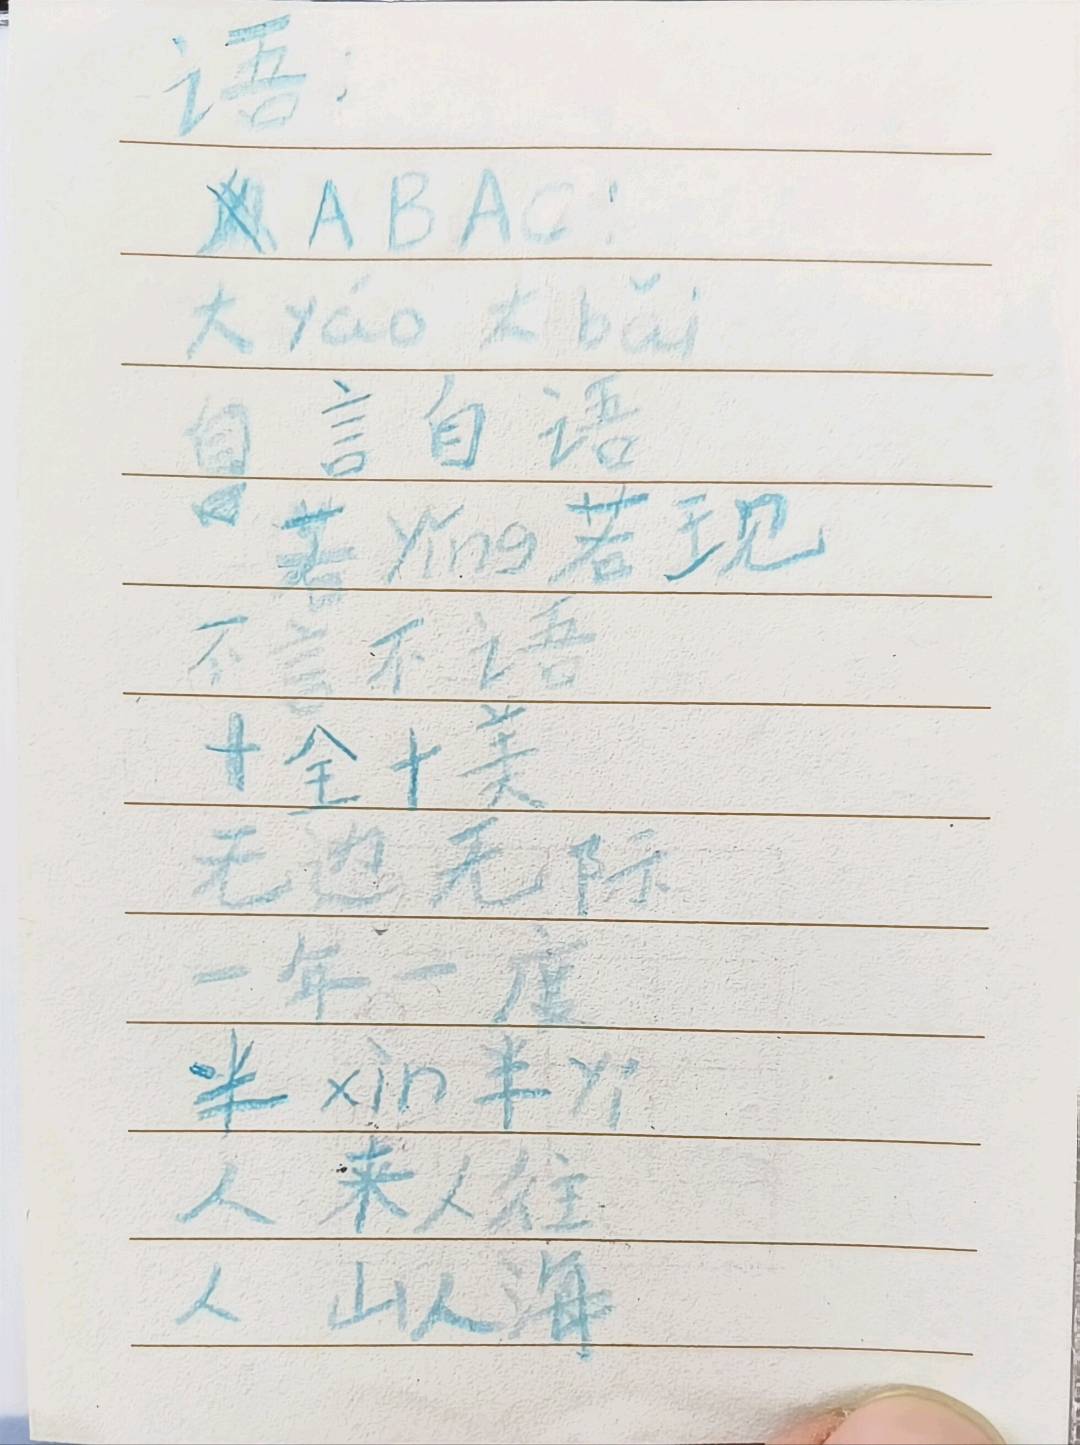 语:
ABAC:
大yáo大bǎi
自言自语
若yǐng若现
不言不语
十全十美
无边无际
一年一度
半xìn半yí
人来人往
人山人海